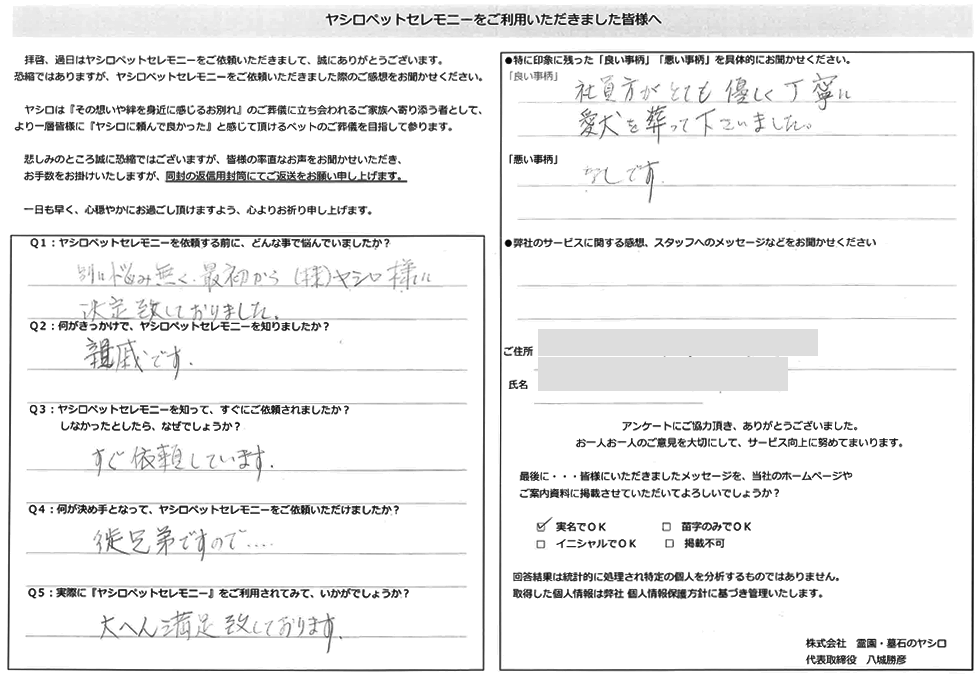 ヤシロペットセレモニーをご利用いただきました皆様へ
拝啓、過日はヤシロペットセレモニーをご依頼いただきまして、誠にありがとうございます。
恐縮ではありますが、ヤシロペットセレモニーをご依頼いただきました際のご感想をお聞かせください。
ヤシロは『その想いや絆を身近に感じるお別れ』のご葬儀に立ち会われるご家族へ寄り添う者として、
より一層皆様に『ヤシロに頼んで良かった』と感じて頂けるペットのご葬儀を目指して参ります。
悲しみのところ誠に恐縮ではございますが、皆様の率直なお声をお聞かせいただき、
お手数をお掛けいたしますが、同封の返信用封筒にてご返送をお願い申し上げます。
一日も早く、心穏やかにお過ごし頂けますよう、心よりお祈り申し上げます。
Q1:ヤシロペットセレモニーを依頼する前に、どんな事で悩んでいましたか?
別に悩み無く、最初から(株)ヤシロ様に
決定致しておりました。
Q2:何がきっかけで、ヤシロペットセレモニーを知りましたか?
親戚です。
Q3:ヤシロペットセレモニーを知って、すぐにご依頼されましたか?
しなかったとしたら、なぜでしょうか?
すぐ依頼しています。
Q4:何が決め手となって、ヤシロペットセレモニーをご依頼いただけましたか?
従兄弟ですので....
Q5:実際に『ヤシロペットセレモニー』をご利用されてみて、いかがでしょうか?
大へん満足致しております。
●特に印象に残った「良い事柄」「悪い事柄」を具体的にお聞かせください。
「良い事柄」
社員方がとても優しく丁寧に
愛犬を葬って下さいました。
「悪い事柄」
なしです。
●弊社のサービスに関する感想、スタッフへのメッセージなどをお聞かせください
ご住所
氏名
アンケートにご協力頂き、ありがとうございました。
お一人お一人のご意見を大切にして、サービス向上に努めてまいります。
最後に・・・皆様にいただきましたメッセージを、当社のホームページや
ご案内資料に掲載させていただいてよろしいでしょうか?
☑ 実名でOK □ 苗字のみでOK
□ イニシャルでOK □ 掲載不可
回答結果は統計的に処理され特定の個人を分析するものではありません。
取得した個人情報は弊社 個人情報保護方針に基づき管理いたします。
株式会社 霊園・墓石のヤシロ
代表取締役 八城勝彦